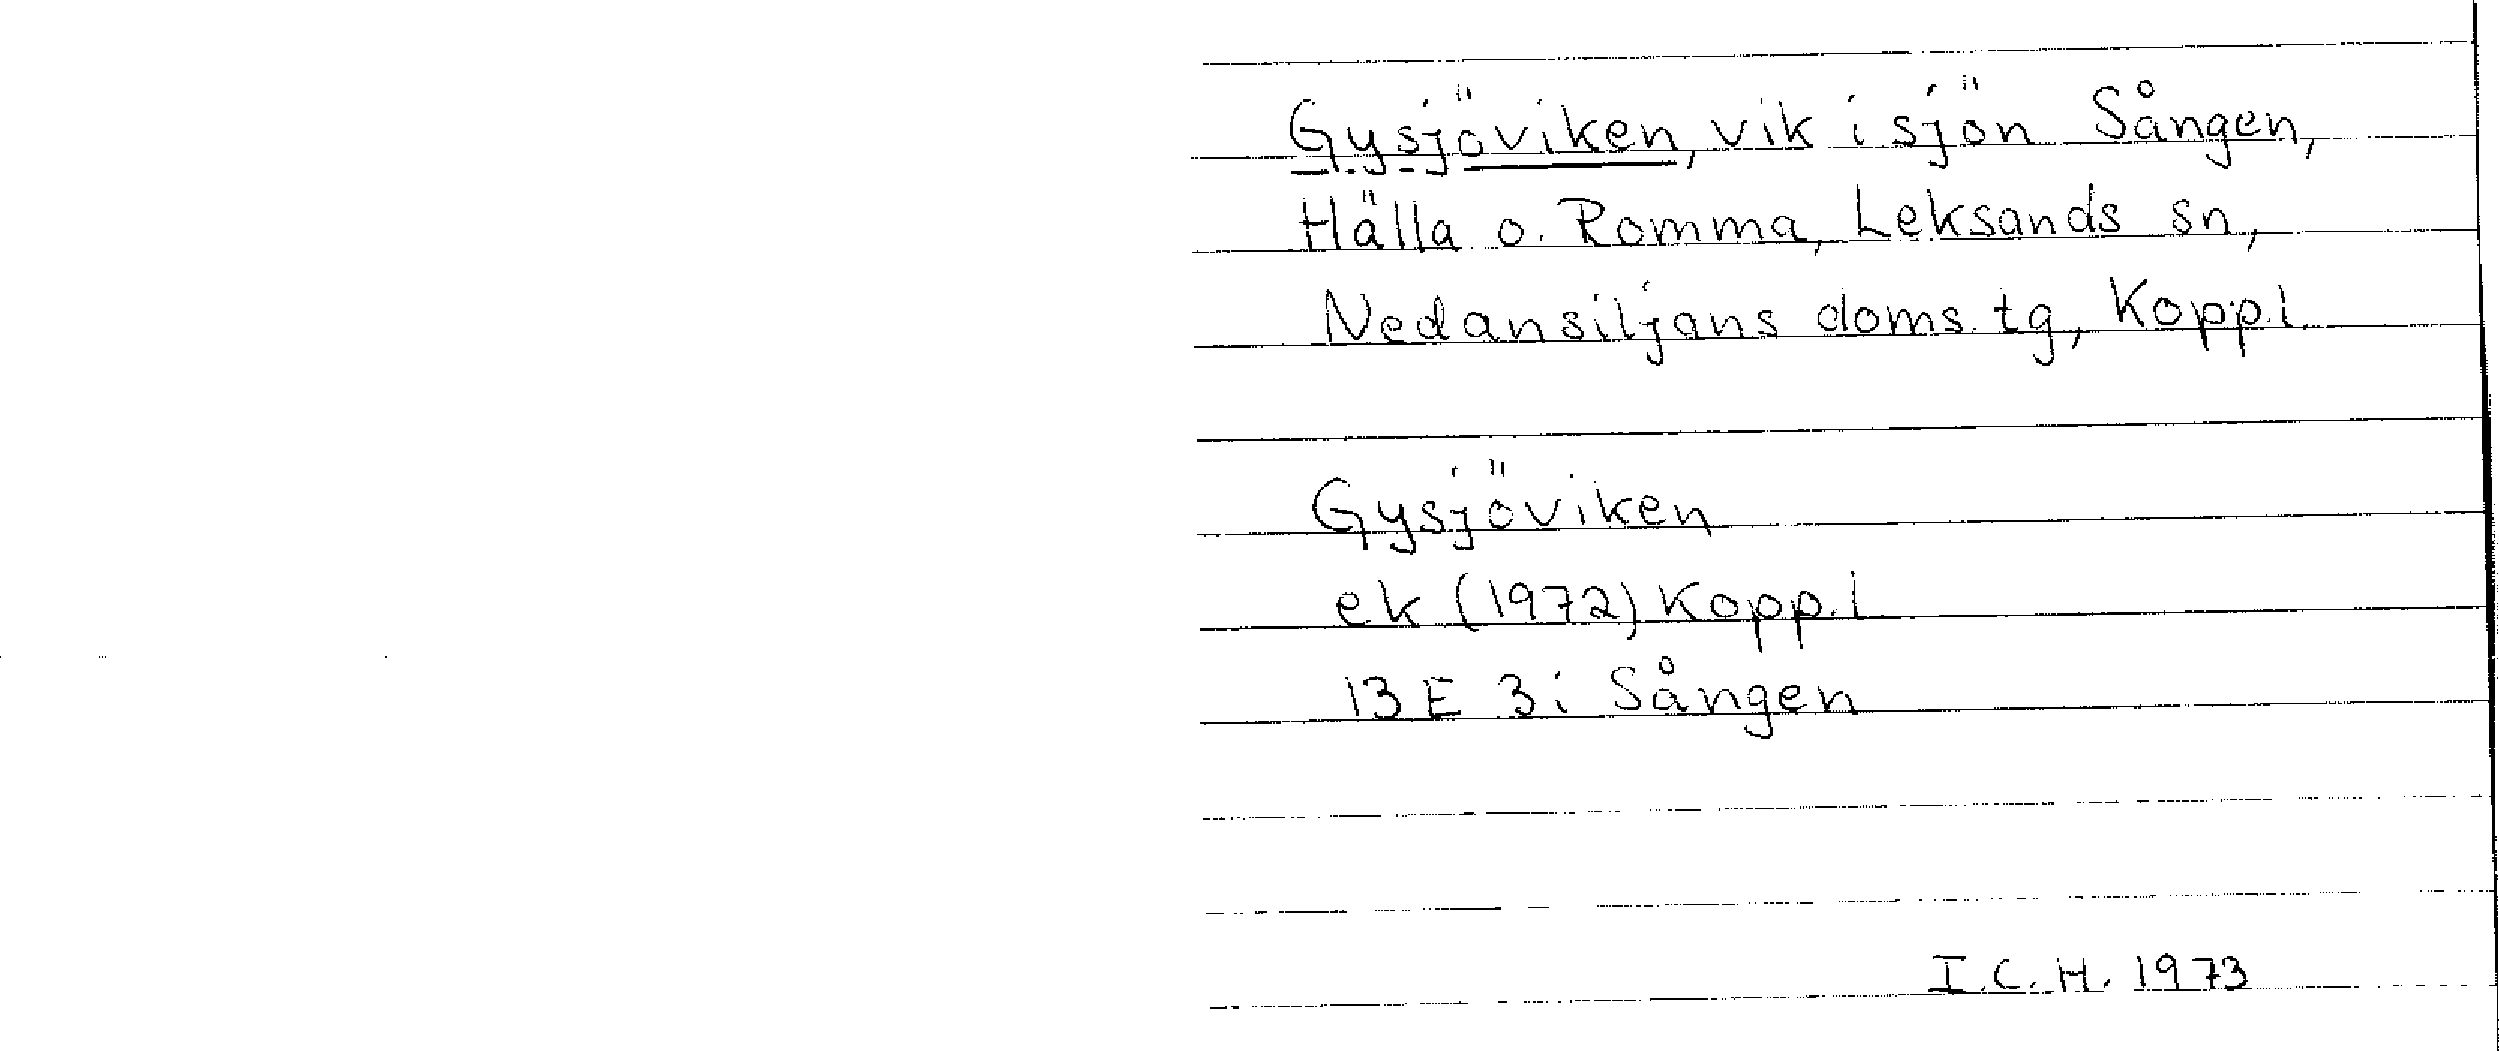 Gysjöviken, vik i sjön Sången,
Hälla o. Romma, Leksands sn,
Nedansiljans doms. tg, Kopp.l.
Gysjöviken
ek (1972) Kopp.l
13 E 3i Sången
I.C.H. 1973